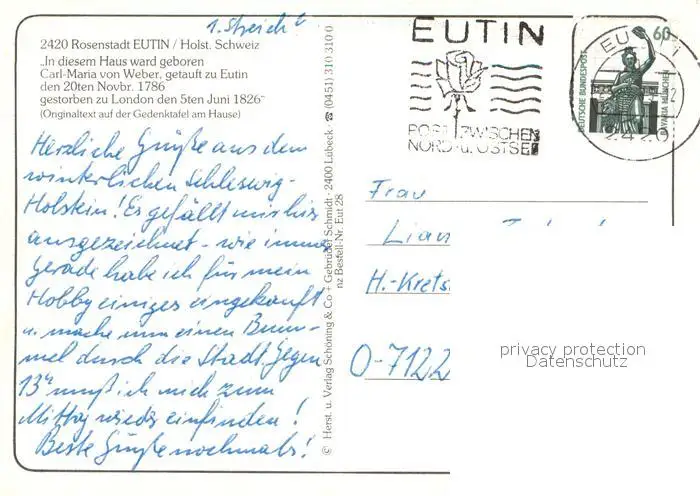 1. Streich
2420 Rosenstadt EUTIN / Holst. Schweiz
„In diesem Haus ward geboren
Carl-Maria von Weber, getauft zu Eutin
den 20ten Novbr. 1786
gestorben zu London den 5ten Juni 1826“
(Originaltext auf der Gedenktafel am Hause)
Herzliche Grüße aus dem
winterlichen Schleswig-
Holstein! Es gefällt mir hier
ausgezeichnet - wie immer
Gerade habe ich für mein
Hobby einiges eingekauft
u. mache nun einen Bum-
mel durch die Stadt. Gegen
13°° muß ich mich zum
Mittag wieder einfinden!
Beste Grüße nochmals!
© Herst. u. Verlag Schöning & Co + Gebrüder Schmidt · 2400 Lübeck · ☎ (0451) 310 310 0
nz Bestell-Nr. Eut 28
EUTIN
POST ZWISCHEN
NORD- u. OSTSEE
EUTIN
2420
60
DEUTSCHE BUNDESPOST
BAVARIA MÜNCHEN
Frau
Lian
H.-Krets
O-7122
privacy protection
Datenschutz